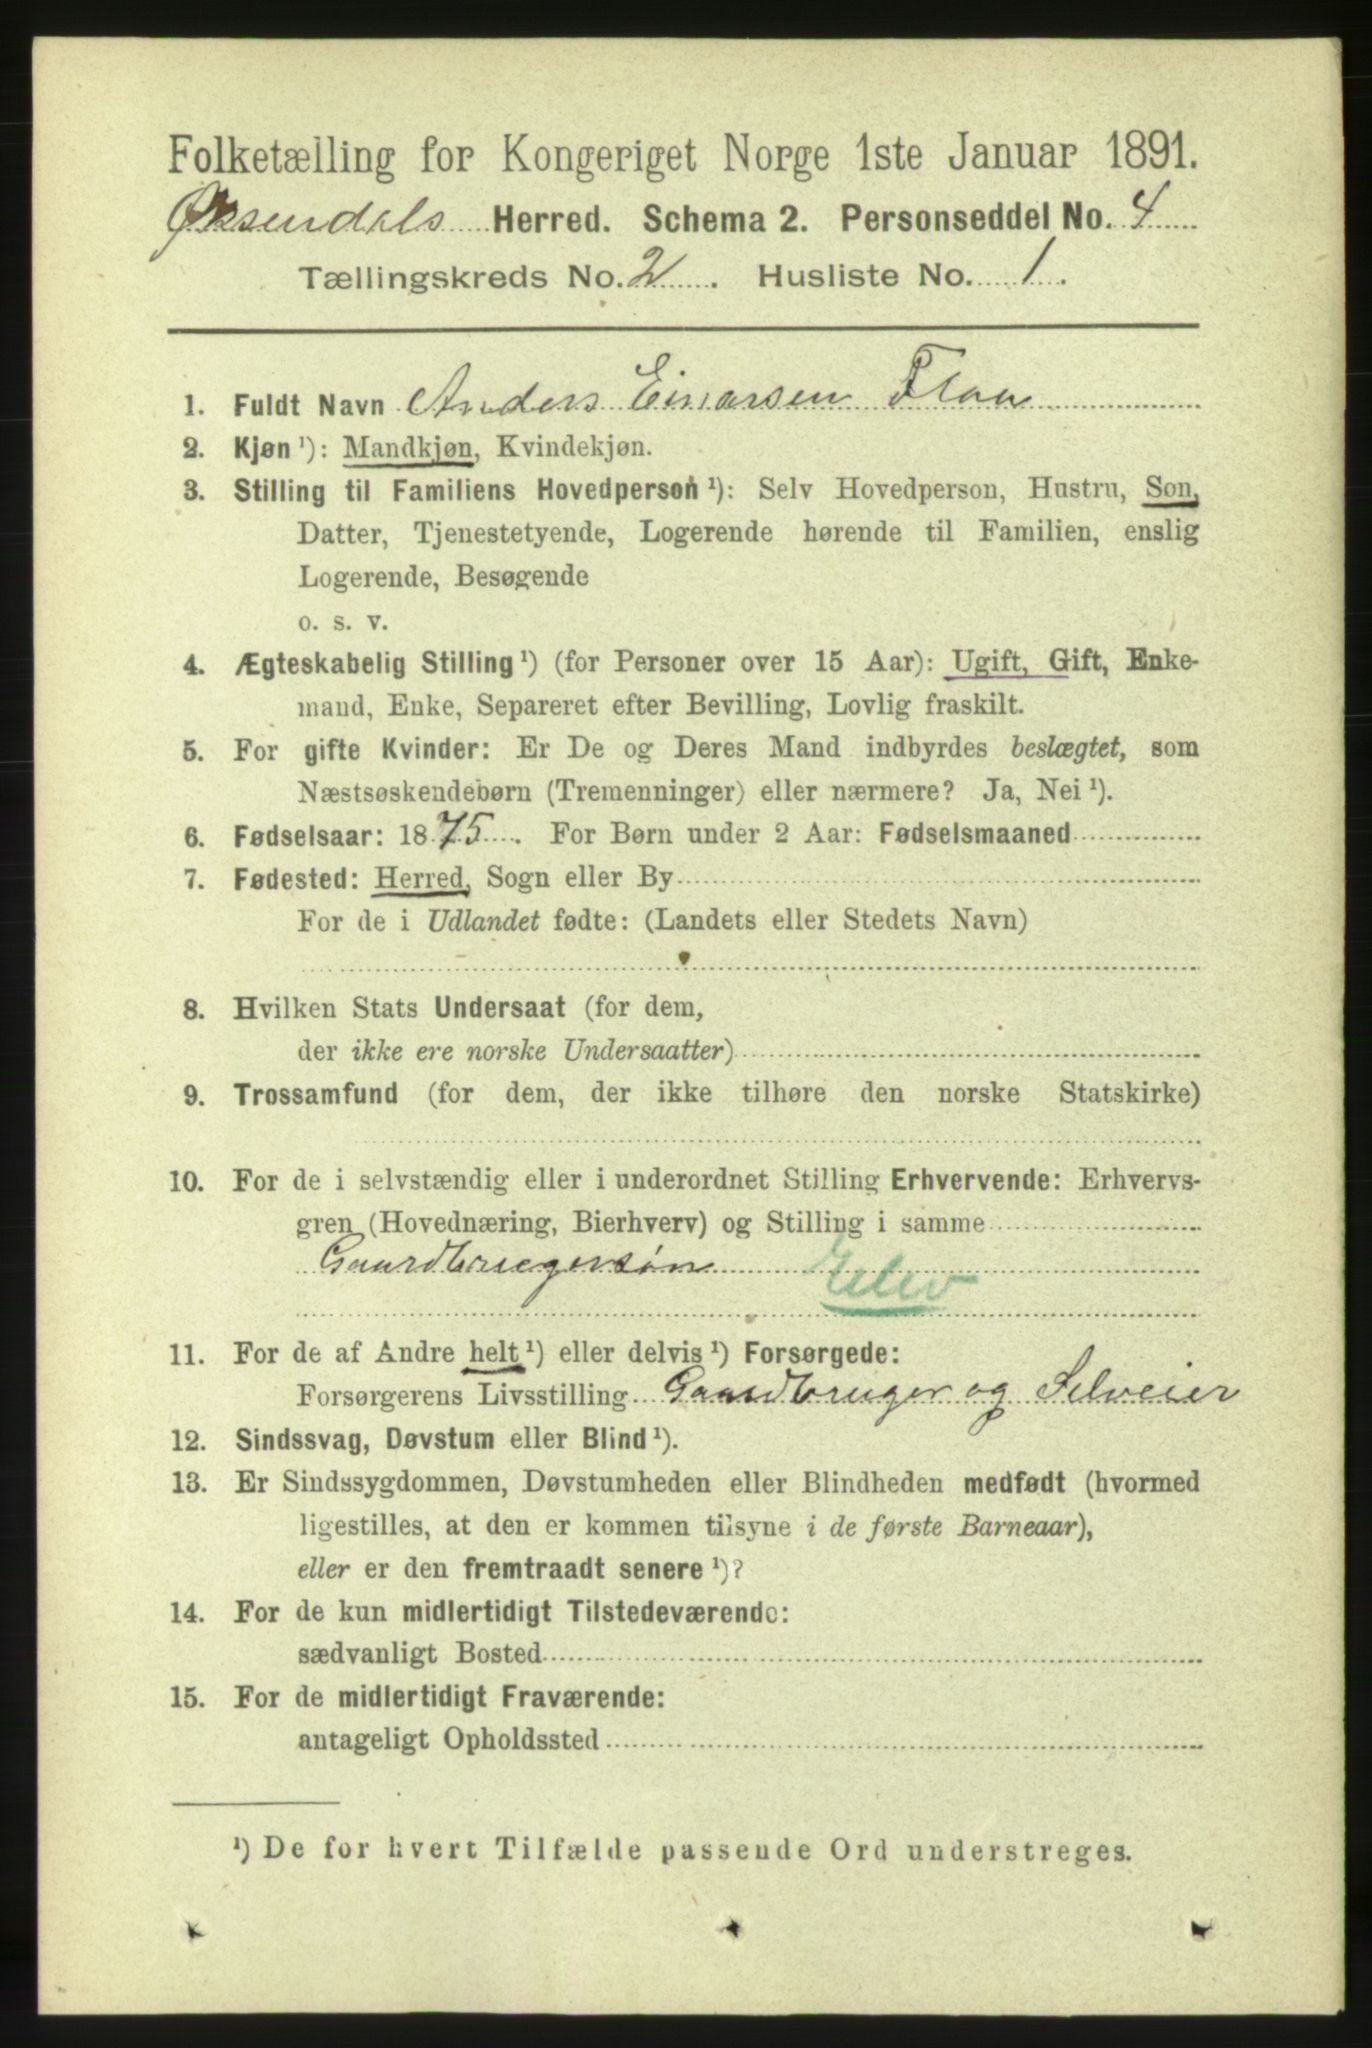 Folketælling for Kongeriget Norge 1ste Januar 1891.
Øksendals Herred. Schema 2. Personseddel No. 4
Tællingskreds No. 2. Husliste No. 1.
1. Fuldt Navn Anders Einarsen Flaa
2. Kjøn ¹): Mandkjøn, Kvindekjøn.
3. Stilling til Familiens Hovedperson ¹): Selv Hovedperson, Hustru, Søn,
Datter, Tjenestetyende, Logerende hørende til Familien, enslig
Logerende, Besøgende
o. s. v.
4. Ægteskabelig Stilling ¹) (for Personer over 15 Aar): Ugift, Gift, Enke-
mand, Enke, Separeret efter Bevilling, Lovlig fraskilt.
5. For gifte Kvinder: Er De og Deres Mand indbyrdes beslægtet, som
Næstsøskendebørn (Tremenninger) eller nærmere? Ja, Nei ¹).
6. Fødselsaar: 1875. For Børn under 2 Aar: Fødselsmaaned
7. Fødested: Herred, Sogn eller By
For de i Udlandet fødte: (Landets eller Stedets Navn)
8. Hvilken Stats Undersaat (for dem,
der ikke ere norske Undersaatter)
9. Trossamfund (for dem, der ikke tilhøre den norske Statskirke)
10. For de i selvstændig eller i underordnet Stilling Erhvervende: Erhvervs-
gren (Hovednæring, Bierhverv) og Stilling i samme
Gaardbrugersøn Elev
11. For de af Andre helt ¹) eller delvis ¹) Forsørgede:
Forsørgerens Livsstilling Gaardbruger og Selveier
12. Sindssvag, Døvstum eller Blind ¹).
13. Er Sindssygdommen, Døvstumheden eller Blindheden medfødt (hvormed
ligestilles, at den er kommen tilsyne i de første Barneaar),
eller er den fremtraadt senere ¹)?
14. For de kun midlertidigt Tilstedeværende:
sædvanligt Bosted
15. For de midlertidigt Fraværende:
antageligt Opholdssted
¹) De for hvert Tilfælde passende Ord understreges.